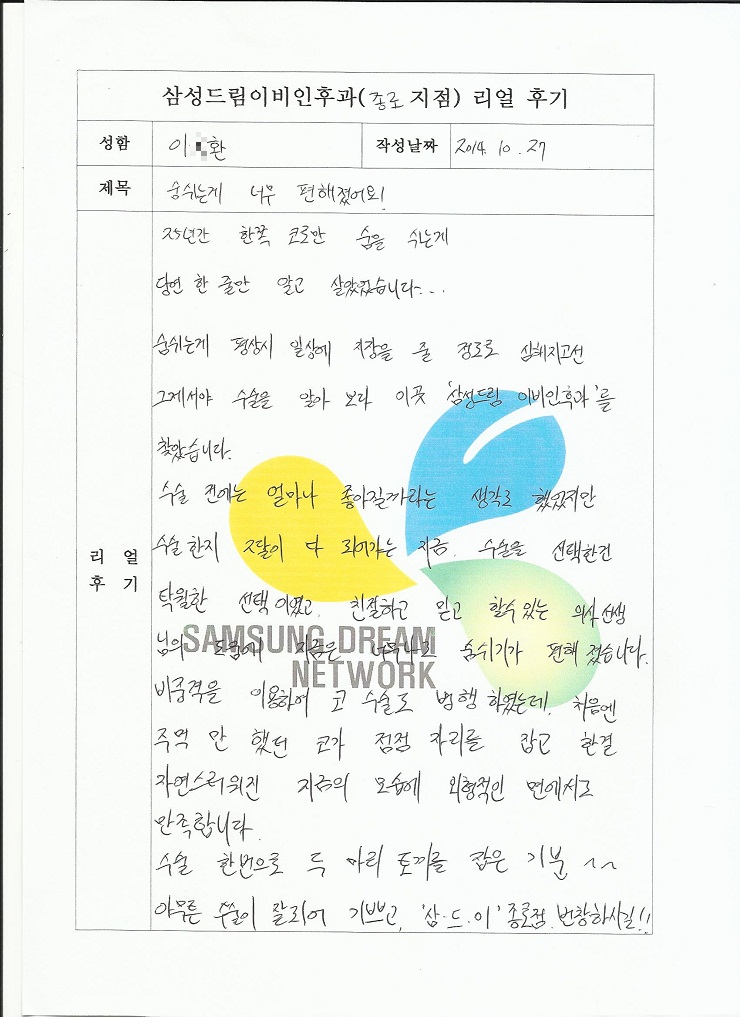 삼성드림이비인후과(종로 지점) 리얼 후기
성함 이 환 작성날짜 2014. 10. 27
제목 숨쉬는게 너무 편해졌어요!
리얼 후기
25년간 한쪽 코로만 숨을 쉬는게
당연 한 줄만 알고 살았었습니다...
숨쉬는게 평상시 일상에 지장을 줄 정도로 심해지고선
그제서야 수술을 알아 보다 이곳 '삼성드림 이비인후과'를
찾았습니다.
수술 전에는 얼마나 좋아질까라는 생각도 했었지만
수술 한지 2달이 다 되어가는 지금. 수술을 선택한건
탁월한 선택 이였고. 친절하고 믿고 할수 있는 의사 선생
님의 도움에 지금은 너무나도 숨쉬기가 편해 졌습니다.
비중격을 이용하여 코 수술도 병행 하였는데. 처음엔
주먹 만 했던 코가 점점 자리를 잡고 한결
자연스러워진 지금의 모습에 외형적인 면에서도
만족합니다.
수술 한번으로 두 마리 토끼를 잡은 기분 ^^
아무튼 수술이 잘되어 기쁘고, '삼.드.이' 종로점. 번창하시길!!
SAMSUNG DREAM
NETWORK